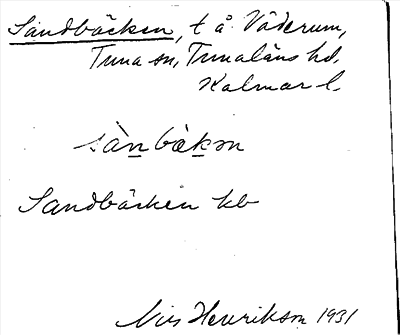 Sandbäcken, t å. Väderum,
Tuna sn, Tunaläns hd.
Kalmar l.
sànbäkən
Sandbäcken kb
Nils Henrikson 1931